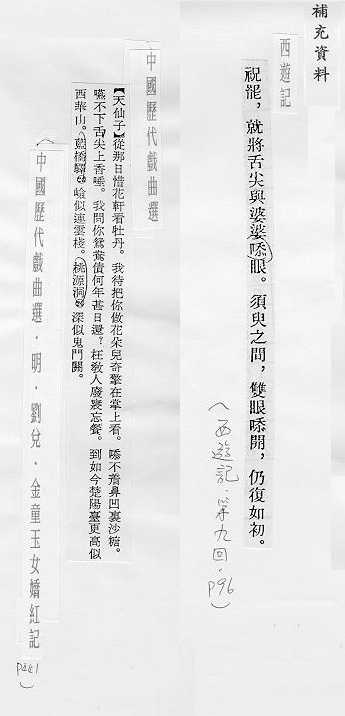 補充資料
西遊記
祝罷，就將舌尖與婆婆㖭眼。須臾之間，雙眼㖭開，仍復如初。
(西遊記．第九回．P96)
中國歷代戲曲選
【天仙子】從那日惜花軒看牡丹。我待把你做花朵兒奇擎在掌上看。㖭不着鼻凹裏沙糖。
嚥不下舌尖上香唾。我問你鴛鴦債何年甚日還？枉敎人廢寢忘餐。到如今楚陽臺更高似
西華山。藍橋驛嶮似連雲棧。桃源洞深似鬼門關。
(中國歷代戲曲選．明．劉兌．金童玉女嬌紅記
P221)